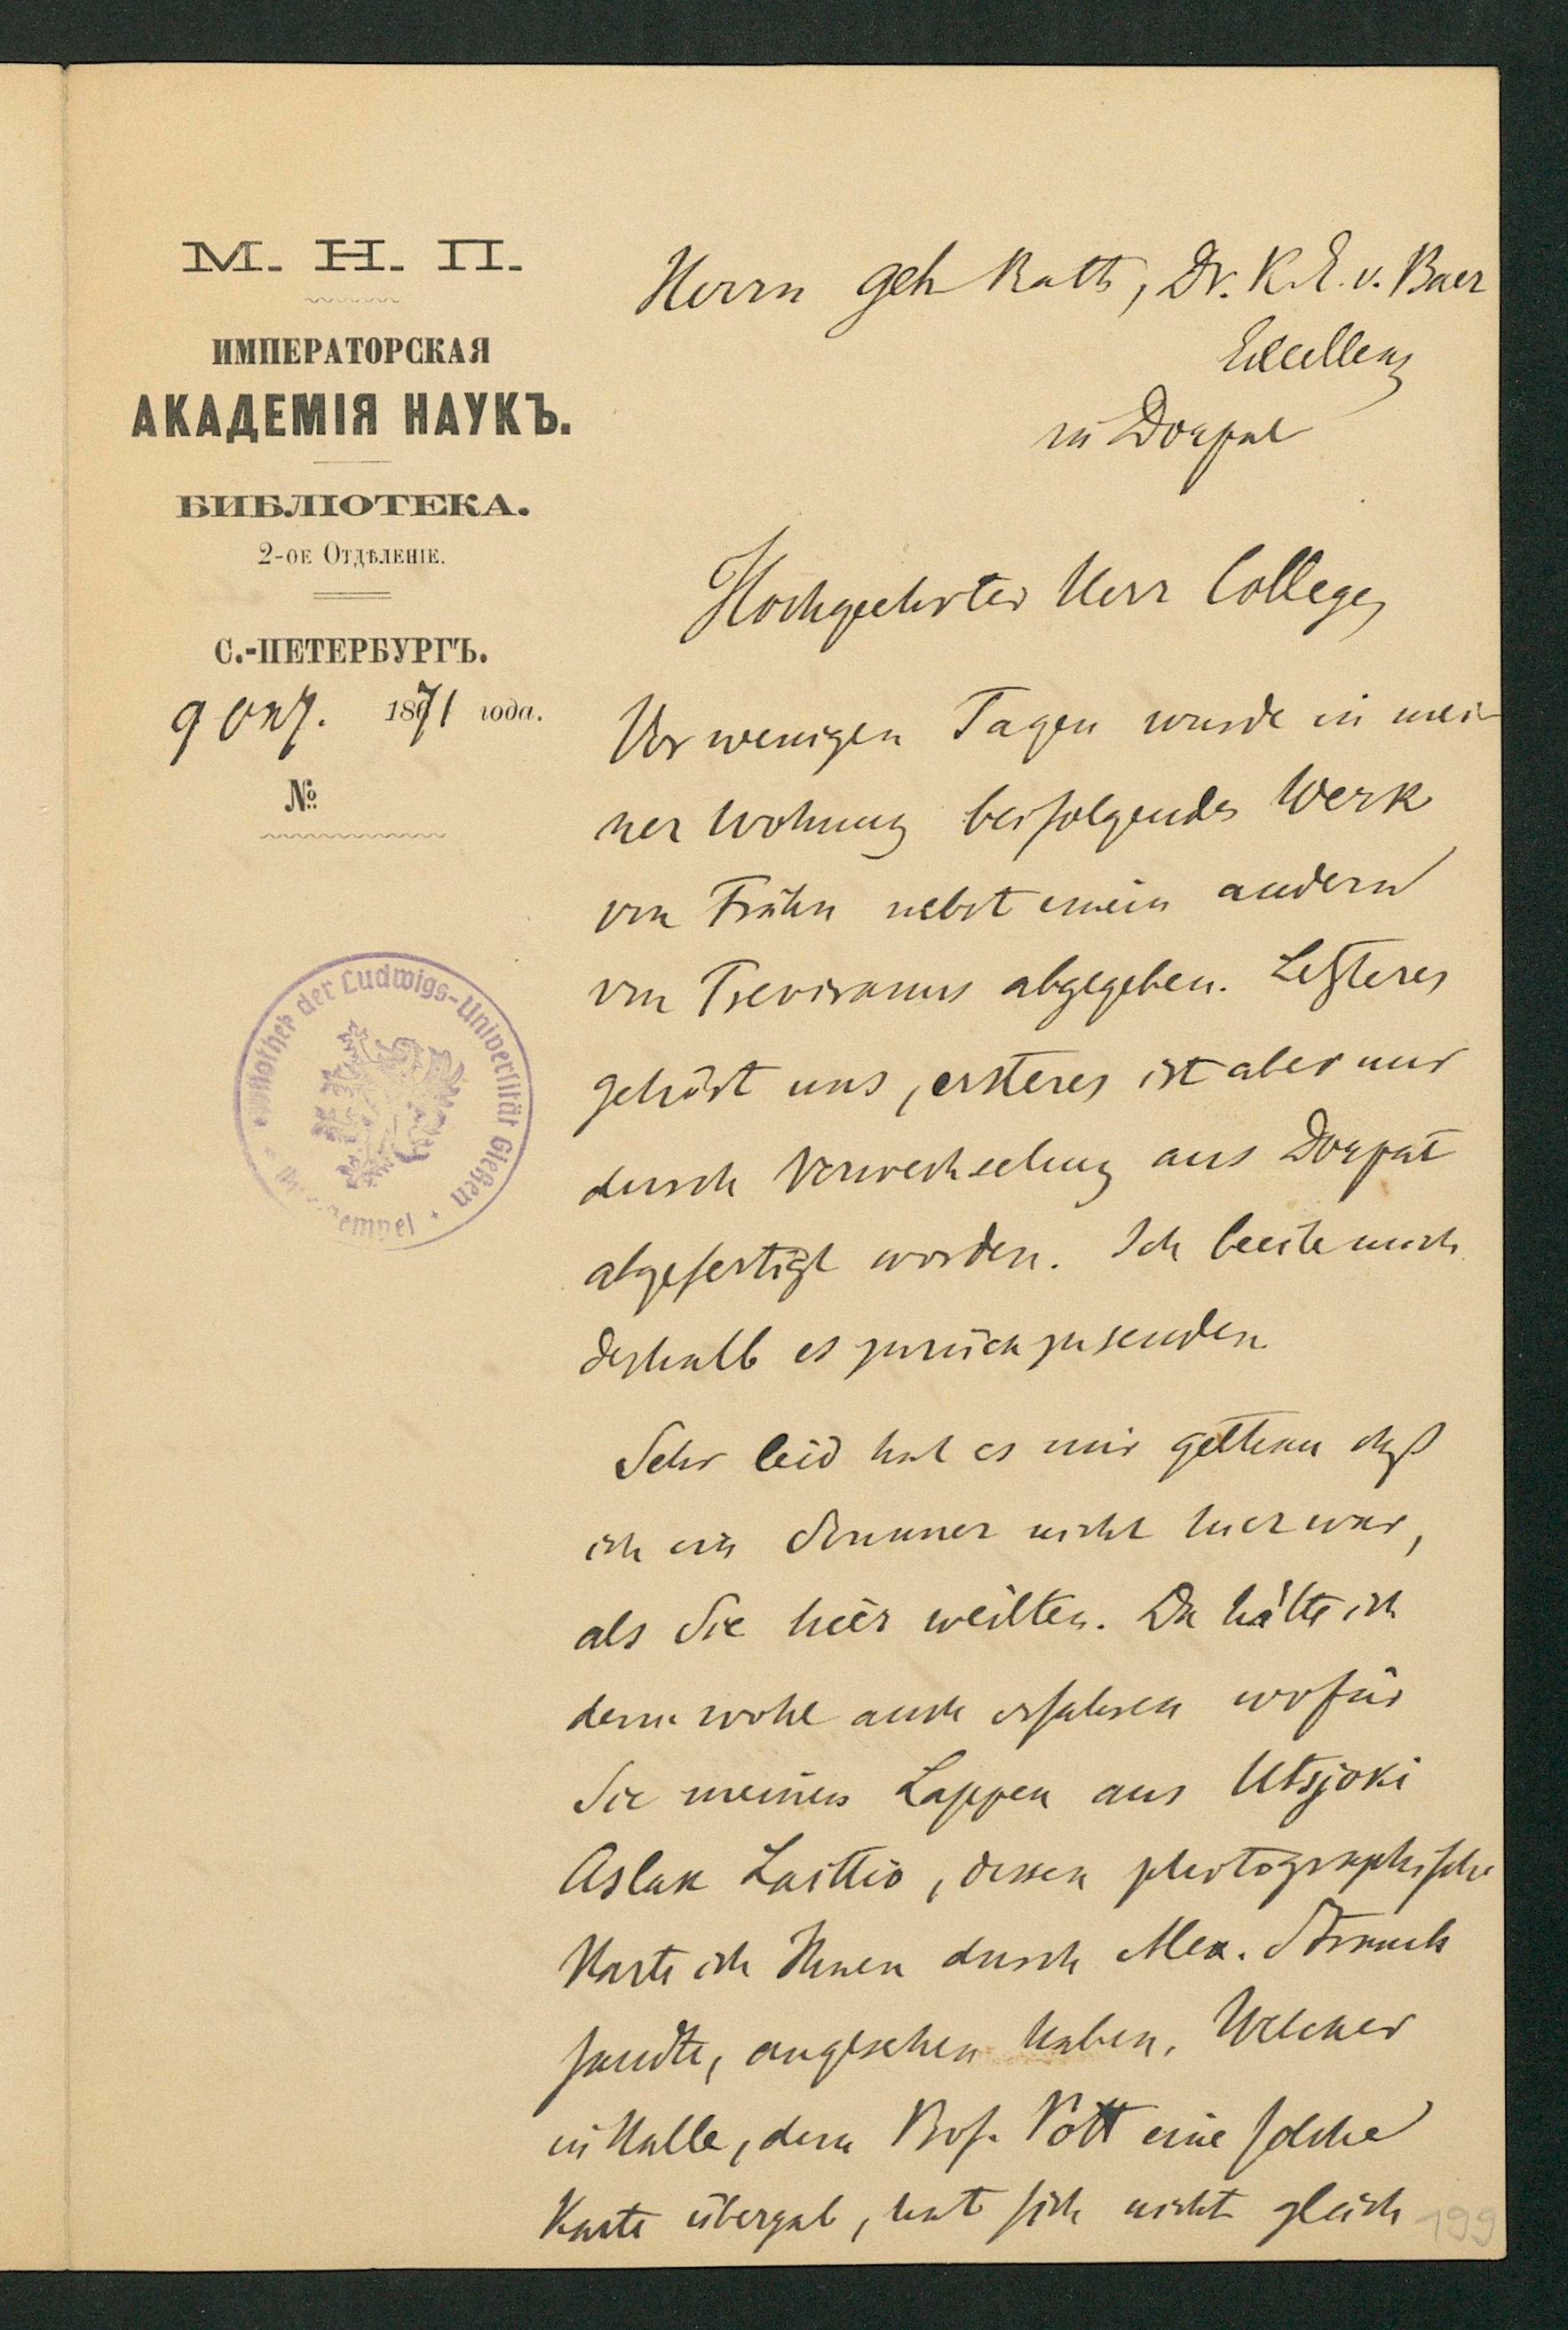 М. Н. П.
ИМПЕРАТОРСКАЯ
АКАДЕМІЯ НАУКЪ.
БИБЛІОТЕКА.
2-ое Отдѣленіе.
С.-ПЕТЕРБУРГЪ.
9 Окт. 1871 года.
№
Herrn Geh Rath, Dr. K. E. v. Baer
Excellenz
in Dorpat
Hochgeehrter Herr College,
Vor wenigen Tagen wurde in mei-
ner Wohnung beifolgendes Werk
von Frähn nebst einem andern
von Treviranus abgegeben. Letzteres
gehört uns, ersteres ist aber nur
durch Verwechselung aus Dorpat
abgefertigt worden. Ich beeile mich
deshalb es zurückzusenden.
Sehr leid hat es mir gethan daß
ich im Sommer nicht hier war,
als Sie hier weilten. Da hätte ich
denn wohl auch erfahren wofür
Sie meinen Lappen aus Utsjoki
Aslak Laittio, dessen photographische
Karte ich Ihnen durch Alex. Strauch
sandte, angesehen haben. Welcker
in Halle, dem Prof. Pott eine solche
Karte übergab, hat sich nicht gleich
199
Bibliothek der Ludwigs-Universität Gießen